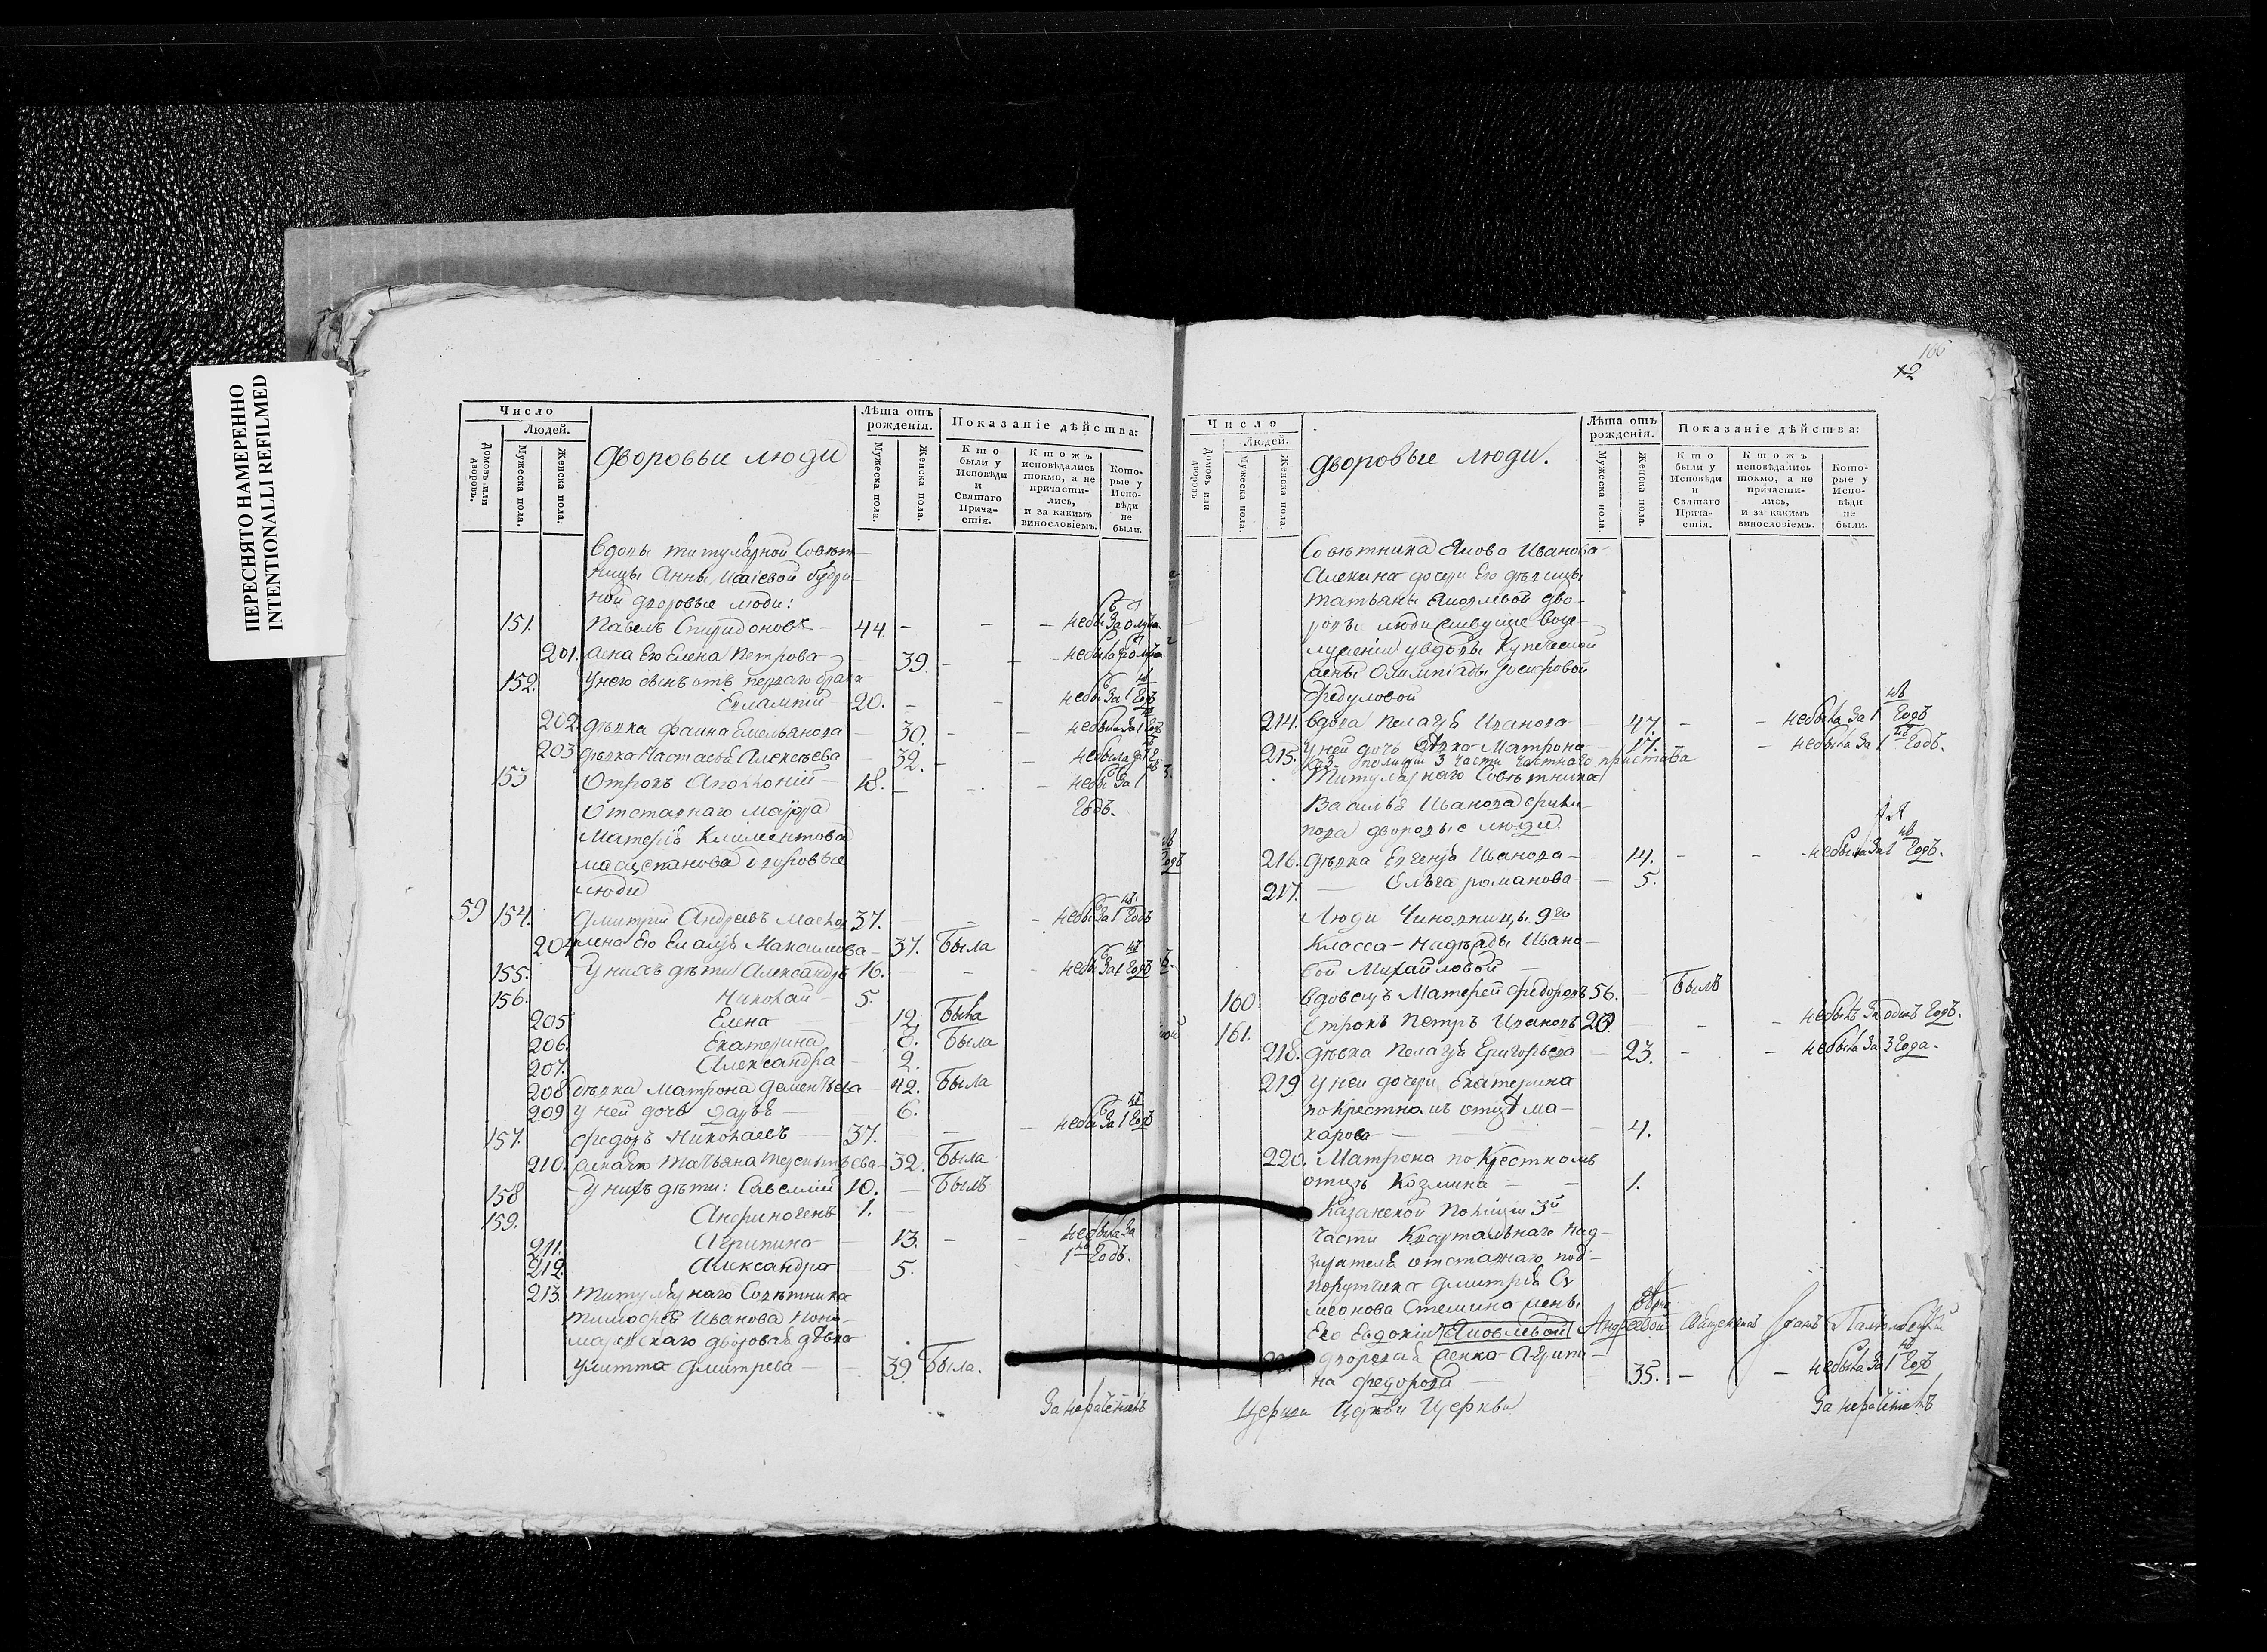 ПЕРЕСНЯТО НАМЕРЕННО
INTENTIONALLI REFILMED
Число
Людей.
Домовъ или дворовъ.
Мужеска пола.
Женска пола.
дворовые люди
Лѣта отъ рожденія.
Мужеска пола.
Женска пола.
Показаніе дѣйства:
Кто были у Исповѣди и Святаго Прича-стія.
Ктожъ исповѣдались токмо, а не причасти-лись, и за какимъ винословіемъ.
Кото-рые у Испо-вѣди не были.
вдовы титулярной Совѣт-
ницы Анны
ной дворовые люди:
151. Павелъ Спиридоновъ 44. - - -
201. жена Его Елена Петрова - 39. - - -
152. у него сынъ отъ перваго брака
Евлампій 20. - - небы за 1 Годъ
202. дѣвка Фаина Емельянова - 30. - - небыла за 1 Годъ
203 дѣвка Настасья Алексѣева - 32. - - небыла за 1 Г.
153 Отрокъ 18. - - - небы за 1
Отставнаго Маіора Годъ.
Матвѣя Климентова
дворовые
люди
59 154. Дмитрій Андреевъ 37. - - - небы за 1 Годъ
204 жена Его Максимова - 37. Была
155. У нихъ дѣти Александръ 16. - - - небы за 1 Годъ
156. Николай - 5.
205 Елена - 12. Была
206. Екатерина 8. Была
207. Александра - 2.
208 дѣвка Матрона Дементьева - 42. Была
209 у ней дочь Дарья - 6.
157. Федоръ Николаевъ - 37. - - - небы за 1 Годъ
210. жена Его Татьяна - 32. Была
158 У нихъ дѣти: Савелій 10. - Былъ
159. Анфиногенъ 1. -
211. Агрипина - 13. - - небыла за
212. Александра - 5. 1 Годъ.
213. Титулярнаго Совѣтника
Тимофея Иванова Поно-
маревскаго дворовая дѣвка
Улитта Дмитрева - - 39 Была.
За нерачѣніемъ
166
12
Число
Людей.
Домовъ или дворовъ
Мужеска пола.
Женска пола.
дворовые люди.
Лѣта отъ рожденія.
Мужеска пола.
Женска пола.
Показаніе дѣйства:
Кто были у Исповѣди и Святаго Прича-стія.
Ктожъ исповѣдались токмо, а не причасти-лись, и за какимъ винословіемъ.
Кото-рые у Испо-вѣди не были.
Совѣтника Якова Иванова
Алекина дочери Его дѣвицы
Татьяны Яковлевой дво-
ровые люди
у вдовы Купеческой
жены Олимпіады
Федуловой
214. вдова Пелагѣя Иванова - 47. - - небыла за 1 Годъ
215. У ней дочь дѣвка Матрона - 17. - небыла за 1 Годъ.
полиціи 3 части частнаго пристава
Титулярнаго Совѣтника
Василья Иванова Фили-
пова дворовые люди.
216. дѣвка Евгенія Иванова - 14. - - - небыла за 1 Годъ.
217. - Ольга романова - 5.
Люди Чиновницы 9го
Класса - Надѣжды Ивано-
вой Михайловой -
160 вдовецъ Матвей Федоровъ 56. - Былъ
161. Отрокъ Петръ Ивановъ 20 - - - небылъ за одинъ Годъ.
218. дѣвка Пелагѣя Григорьева - 23. - - небыла за 3 Года.
219 У ней дочери, Екатерина
по крестномъ отцѣ ма-
карова - - - 4.
220. Матрона по Крестномъ
отцѣ Козмина - - 1.
Казанской Полиціи 3й
Части Квартальнаго Над-
зирателя отставнаго под-
порутчика Дмитрія Си
меонова Стешина жены
Его Евдокіи Яковлевой Андреевой Священникъ
дворовая женка Агрипи-
на Федорова - 35. - - небыла за 1 Годъ
Церкви Церкви Церкви За нерачѣніемъ